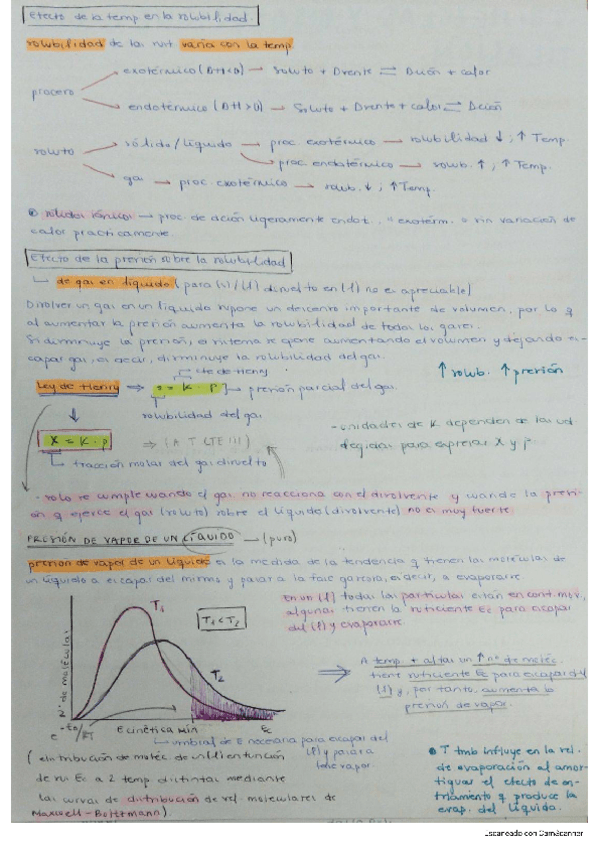 Efecto de la temp en la solubilidad.
solubilidad de las sust varía con la temp.
exotérmico (ΔH<0) → Soluto + Dvente ⇌ Dción + calor
proceso
endotérmico (ΔH>0) → Soluto + Dvente + calor ⇌ Dción
sólido/líquido → proc. exotérmico → solubilidad ↓ ; ↑ Temp.
soluto
proc. endotérmico → solub. ↑ ; ↑ Temp.
gas → proc. exotérmico → solub. ↓ ; ↑ Temp.
sólidos iónicos → proc. de dción ligeramente endot. o exotérm. o sin variación de
calor practicamente.
Efecto de la presión sobre la solubilidad
de gas en líquido (para (s)/(l) disuelto en (l) no es apreciable)
Disolver un gas en un líquido supone un descenso importante de volumen, por lo q
al aumentar la presión aumenta la solubilidad de todos los gases.
Si disminuye la presión, el sistema se opone aumentando el volumen y dejando es-
capar gas, es decir, disminuye la solubilidad del gas.
cte de Henry
↑ solub. ↑ presión
Ley de Henry ⇒ s = K · P → presión parcial del gas.
solubilidad del gas
- unidades de K dependen de las ud
elegidas para expresar X y p.
X = K · p ⇒ (A T CTE!!!)
fracción molar del gas disuelto
· solo se cumple cuando el gas no reacciona con el disolvente y cuando la presi-
ón q ejerce el gas (soluto) sobre el líquido (disolvente) no es muy fuerte.
PRESIÓN DE VAPOR DE UN LÍQUIDO → (puro)
presión de vapor de un líquido es la medida de la tendencia q tienen las moléculas de
un líquido a escapar del mismo y pasar a la fase gaseosa, es decir, a evaporarse
En un (l) todas las partículas están en cont. mov,
algunas tienen la suficiente Ec para escapar
del (l) y evaporarse.
T1
T1 < T2
T2
Nº de moléculas
A temp + altas un ↑ nº de moléc.
tiene suficiente Ec para escapar del
(l) y, por tanto, aumenta la
presión de vapor.
e
E cinética min
Ec
umbral de E necesaria para escapar del
(l) y pasar a
fase vapor.
(distribución de moléc de un (l) en función
de su Ec a 2 temp distintas mediante
las curvas de distribución de vel moleculares de
Maxwell-Boltzmann).
T tmb influye en la vel.
de evaporación al amor-
tiguar el efecto de en-
friamiento q produce la
evap. del líquido.
Escaneado con CamScanner